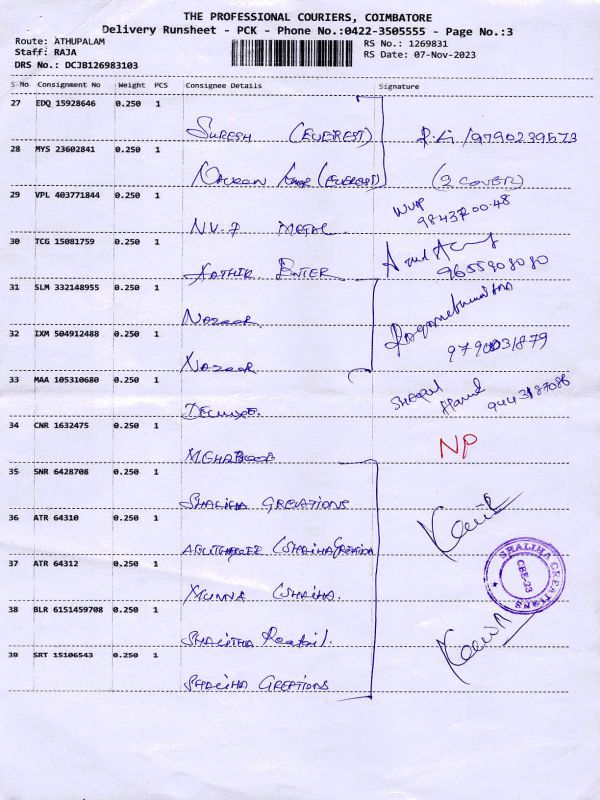 THE PROFESSIONAL COURIERS, COIMBATORE
Delivery Runsheet - PCK - Phone No.:0422-3505555 - Page No.:3
Route: ATHUPALAM
RS No.: 1269831
Staff: RAJA
RS Date: 07-Nov-2023
DRS No.: DCJB126983103
S No Consignment No Weight PCS Consignee Details Signature
27 EDQ 15928646 0.250 1
SURESH (EVEREST) 9790239573
28 MYS 23602841 0.250 1
(EVEREST) (2 COVER)
29 VPL 403771844 0.250 1
NV.7 METAL 9843700048
30 TCG 15081759 0.250 1
KATHIR ENTER 9655908080
31 SLM 332148955 0.250 1
Nazeer
32 IXM 504912488 0.250 1
Nazeer
33 MAA 105310680 0.250 1
DELUXE.
34 CNR 1632475 0.250 1
MEHABOOB NP
35 SNR 6428708 0.250 1
SHALIHA CREATIONS
36 ATR 64310 0.250 1
(SHALIHA CREATION
37 ATR 64312 0.250 1
MUNNA (SHALIHA.
SHALIHA CREATIONS
CBE-23
38 BLR 6151459708 0.250 1
SHALITHA Reatil.
39 SRT 15106543 0.250 1
SHALIHA CREATIONS